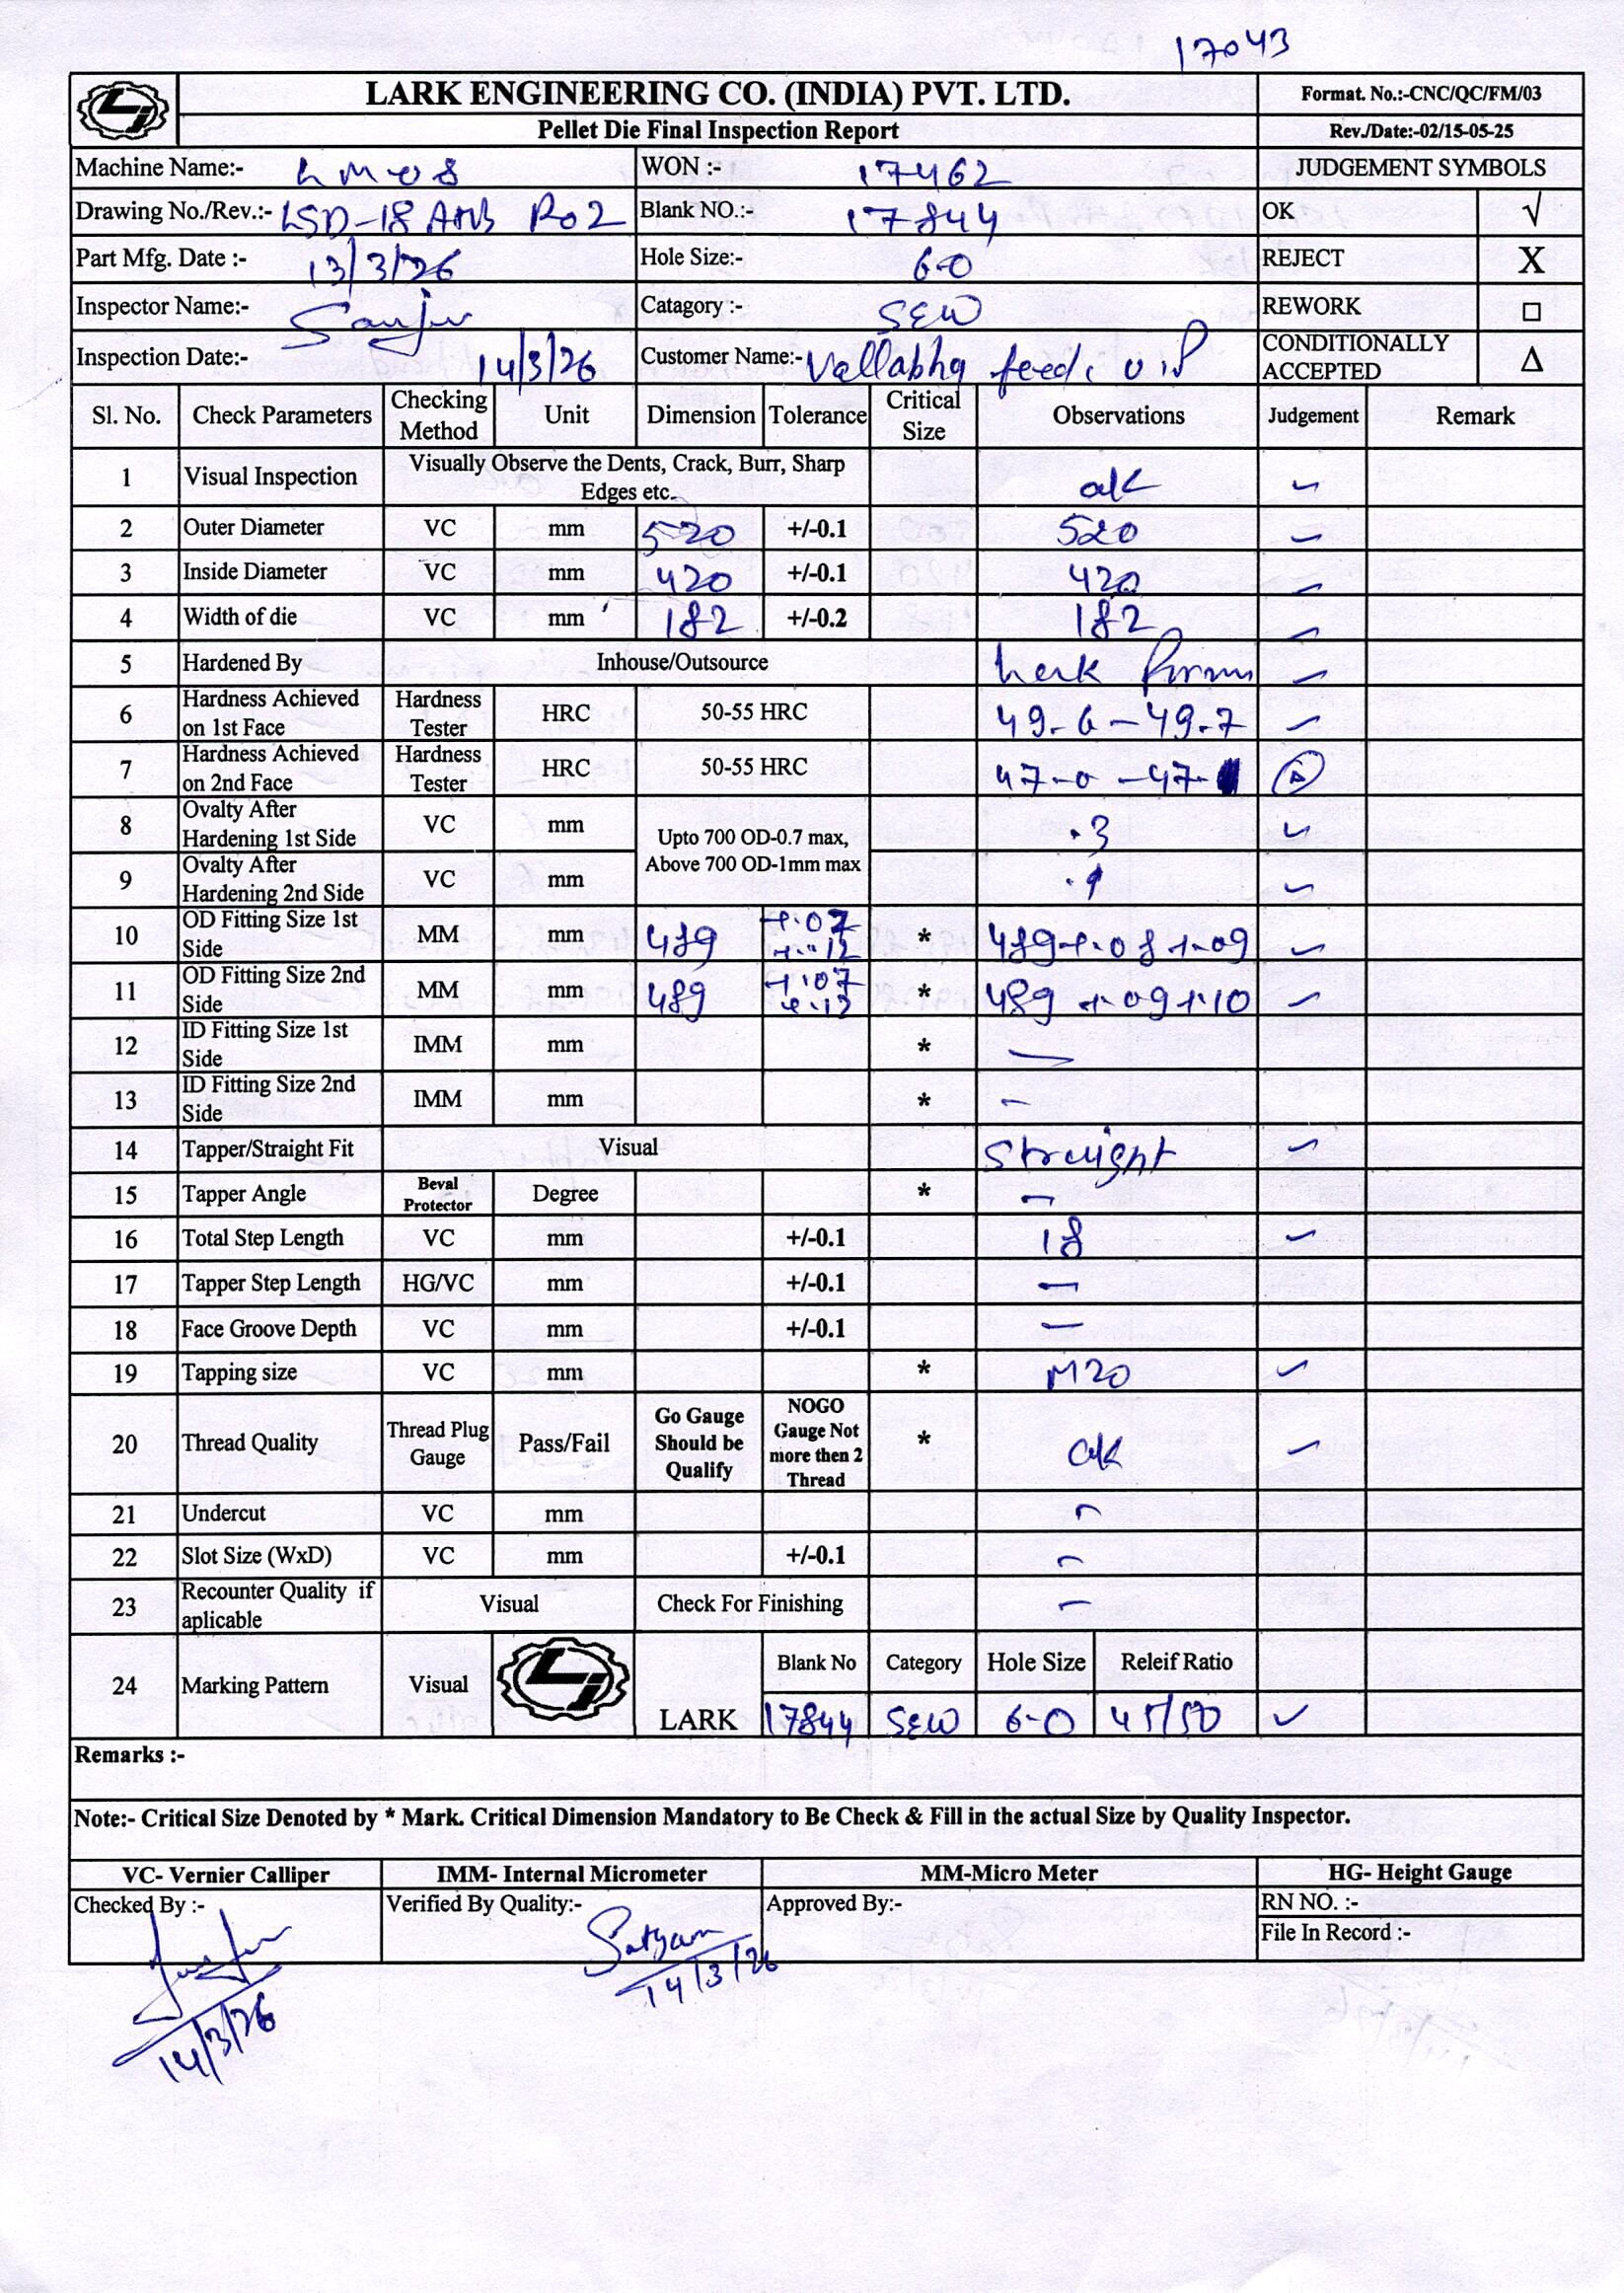 17043
LARK ENGINEERING CO. (INDIA) PVT. LTD. Format. No.:-CNC/QC/FM/03
Pellet Die Final Inspection Report Rev./Date:-02/15-05-25
Machine Name:- LM08 WON :- 17462 JUDGEMENT SYMBOLS
Drawing No./Rev.:- LSD-18 R02 Blank NO.:- 17844 OK √
Part Mfg. Date :- 13/3/26 Hole Size:- 6.0 REJECT X
Inspector Name:- Sanju Catagory :- SEW REWORK □
Inspection Date:- 14/3/26 Customer Name:- Vallabha feed CONDITIONALLY ACCEPTED Δ
Sl. No. Check Parameters Checking Method Unit Dimension Tolerance Critical Size Observations Judgement Remark
1 Visual Inspection Visually Observe the Dents, Crack, Burr, Sharp Edges etc. ok ✓
2 Outer Diameter VC mm 520 +/-0.1 520 ✓
3 Inside Diameter VC mm 420 +/-0.1 420 ✓
4 Width of die VC mm 182 +/-0.2 182 ✓
5 Hardened By Inhouse/Outsource ✓
6 Hardness Achieved on 1st Face Hardness Tester HRC 50-55 HRC 49.6 - 49.7 ✓
7 Hardness Achieved on 2nd Face Hardness Tester HRC 50-55 HRC 47.0 - 47. Δ
8 Ovalty After Hardening 1st Side VC mm Upto 700 OD-0.7 max, Above 700 OD-1mm max .3 ✓
9 Ovalty After Hardening 2nd Side VC mm ✓
10 OD Fitting Size 1st Side MM mm 489 +.07 +.12 * 489+.08+.09 ✓
11 OD Fitting Size 2nd Side MM mm 489 +.07 +.12 * 489 +.09+.10 ✓
12 ID Fitting Size 1st Side IMM mm * —
13 ID Fitting Size 2nd Side IMM mm * —
14 Tapper/Straight Fit Visual Straight ✓
15 Tapper Angle Beval Protector Degree * —
16 Total Step Length VC mm +/-0.1 18 ✓
17 Tapper Step Length HG/VC mm +/-0.1 —
18 Face Groove Depth VC mm +/-0.1 —
19 Tapping size VC mm * M20 ✓
20 Thread Quality Thread Plug Gauge Pass/Fail Go Gauge Should be Qualify NOGO Gauge Not more then 2 Thread * ok ✓
21 Undercut VC mm —
22 Slot Size (WxD) VC mm +/-0.1 —
23 Recounter Quality if aplicable Visual Check For Finishing —
24 Marking Pattern Visual LARK Blank No Category Hole Size Releif Ratio
17844 SEW 6.0 45/50 ✓
Remarks :-
Note:- Critical Size Denoted by * Mark. Critical Dimension Mandatory to Be Check & Fill in the actual Size by Quality Inspector.
VC- Vernier Calliper IMM- Internal Micrometer MM-Micro Meter HG- Height Gauge
Checked By :- Verified By Quality:- Satyam Approved By:- RN NO. :-
File In Record :-
14/3/26
14/3/26